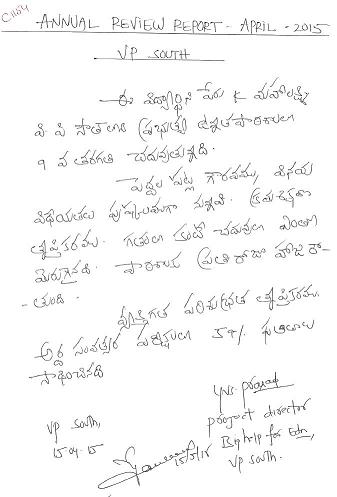 C1164
ANNUAL REVIEW REPORT - APRIL - 2015
VP SOUTH
ఈ విద్యార్థిని పేరు K మహాలక్ష్మి
వి. పి సౌత్ లోని ప్రభుత్వ ఉన్నత పాఠశాలలో
9 వ తరగతి చదువుతున్నది.
పెద్దల పట్ల గౌరవము, వినయ
విధేయతలు పుష్కలముగా ఉన్నవి. క్రమశిక్షణ
తృప్తికరము. గతంలో కంటే చదువులో ఎంతో
మెరుగైనది. పాఠశాలకు ప్రతి రోజూ హాజరౌ-
-తుంది.
వ్యక్తిగత పరిశుభ్రత తృప్తికరము.
అర్ధ సంవత్సర పరీక్షలలో 59% ఫలితాలు
సాధించినది
YNS. prasad
project director
Big help for Edn,
VP south.
VP South,
15.04.15
15/5/15